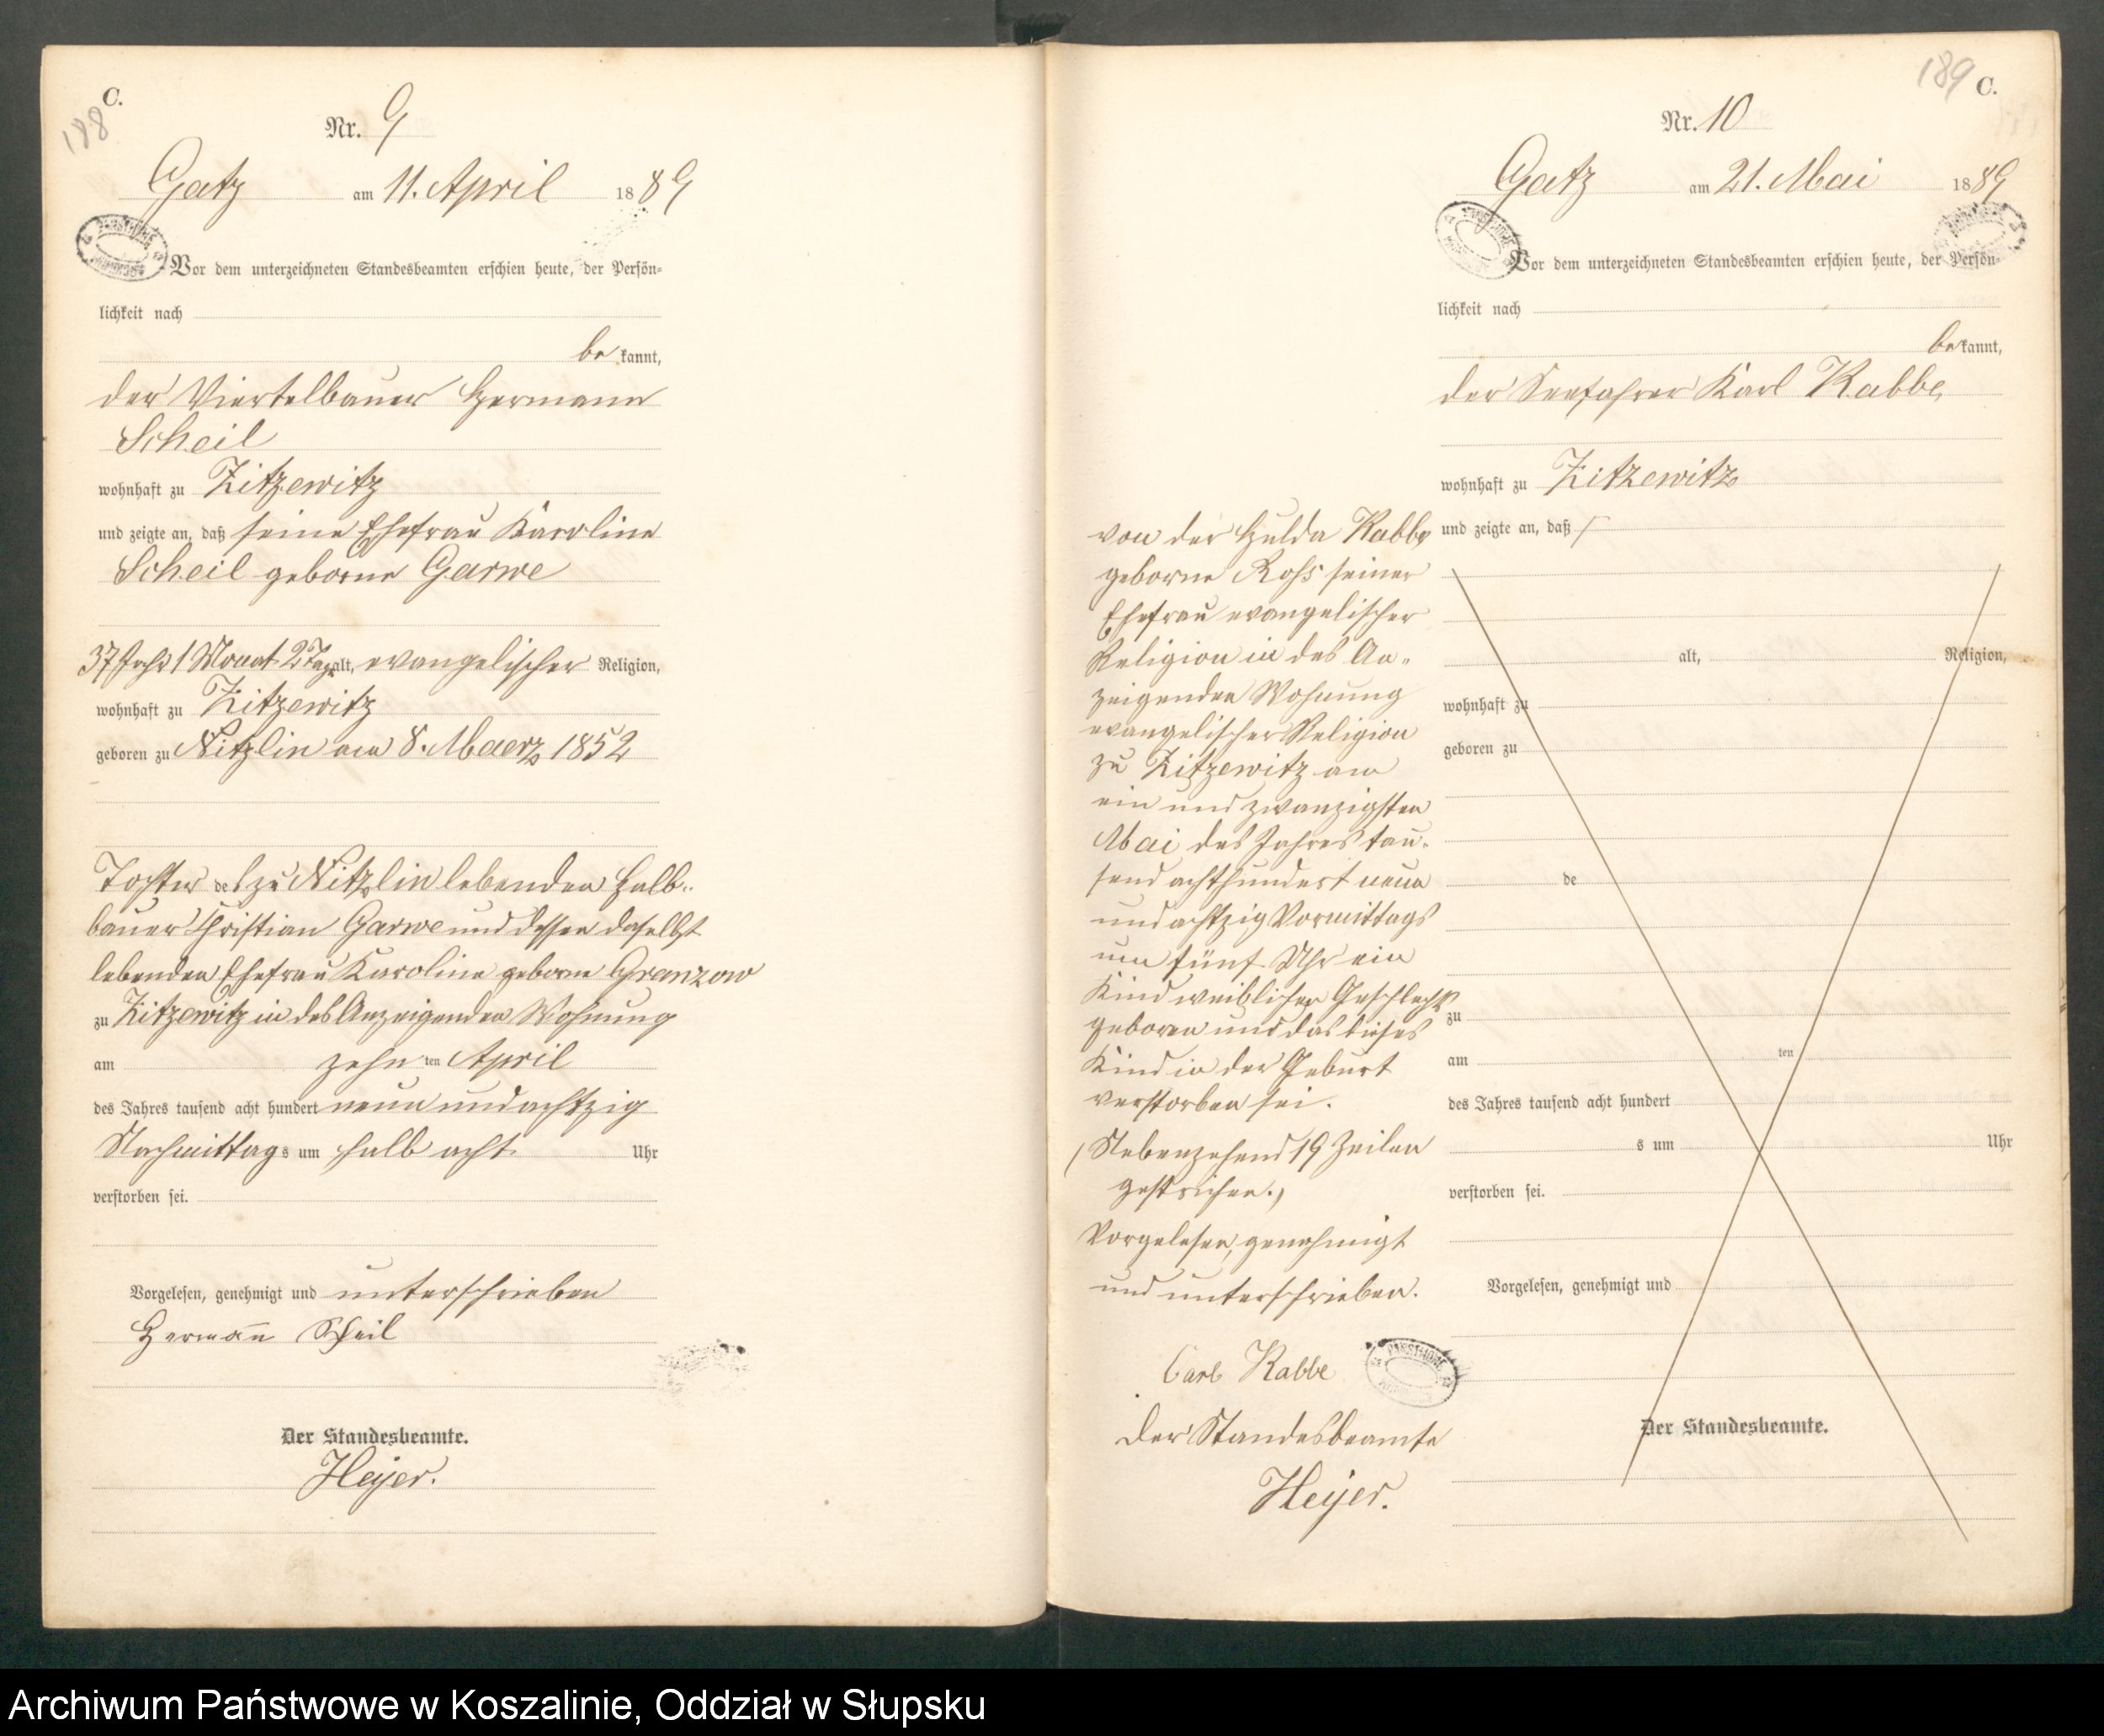 C.
188
Nr. 9
Gatz am 11. April 1889
Vor dem unterzeichneten Standesbeamten erschien heute, der Persön-
lichkeit nach
be kannt,
der Viertelbauer Hermann
Scheil
wohnhaft zu Zitzewitz
und zeigte an, daß seine Ehefrau Karoline
Scheil geborne Garwe
37 Jahr 1 Monat 2 Tage alt, evangelischer Religion,
wohnhaft zu Zitzewitz
geboren zu Nitzlin am 8. Maerz 1852
Tochter des zu Nitzlin lebenden Halb-
bauer Christian Garwe und dessen daselbst
lebenden Ehefrau Karoline geborne Granzow
zu Zitzewitz in des Anzeigenden Wohnung
am zehn ten April
des Jahres tausend acht hundert neun und achtzig
Nachmittag s um halb acht Uhr
verstorben sei.
Vorgelesen, genehmigt und unterschrieben
Hermann Scheil
Der Standesbeamte.
Heyer.
189 C.
Nr. 10
Gatz am 21. Mai 1889
Vor dem unterzeichneten Standesbeamten erschien heute, der Persön-
lichkeit nach
be kannt,
der Seefahrer Karl Rabbe,
wohnhaft zu Zitzewitz
und zeigte an, daß
alt, Religion,
wohnhaft zu
geboren zu
de
zu
am ten
des Jahres tausend acht hundert
s um Uhr
verstorben sei.
Vorgelesen, genehmigt und
Der Standesbeamte.
von der Hulda Rabbe
geborne Roß seiner
Ehefrau evangelischer
Religion in des An-
zeigenden Wohnung
evangelischer Religion
zu Zitzewitz am
ein und zwanzigsten
Mai des Jahres tau-
send achthundert neun
und achtzig Vormittags
um fünf Uhr ein
Kind weiblichen Geschlechts
geboren und das dieses
Kind in der Geburt
verstorben sei.
(Nebenstehend 19 Zeilen
gestrichen.)
Vorgelesen, genehmigt
und unterschrieben.
Carl Rabbe
Der Standesbeamte
Heyer.
Archiwum Państwowe w Koszalinie, Oddział w Słupsku